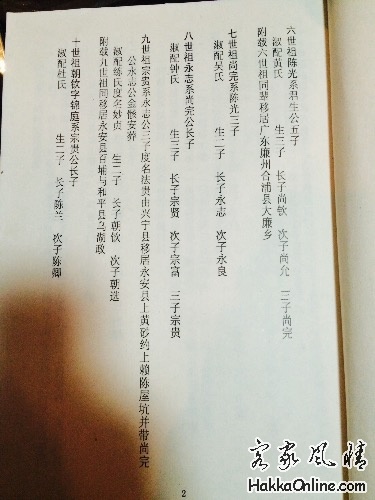 六世祖陈光系君生公五子
淑配黄氏 生三子 长子尚钦 次子尚允 三子尚完
附载六世祖同辈移居广东廉州合浦县大廉乡
七世祖尚完系陈光三子
淑配吴氏 生二子 长子永志 次子永良
八世祖永志系尚完公长子
淑配钟氏 生三子 长子宗贤 次子宗富 三子宗贵
九世祖宗贵系永志公三子度名法贵由兴宁县移居永安县上黄砂约上赖陈屋坑并带尚完
公永志公金骸安葬
淑配练氏度名妙贞 生二子 长子朝钦 次子朝选
附载九世祖同移居永安县百埔与和平县乌湖政
十世祖朝钦字锦庭系宗贵公长子
淑配杜氏 生二子 长子陈兰 次子陈卿
2
客家风情
HakkaOnline.com